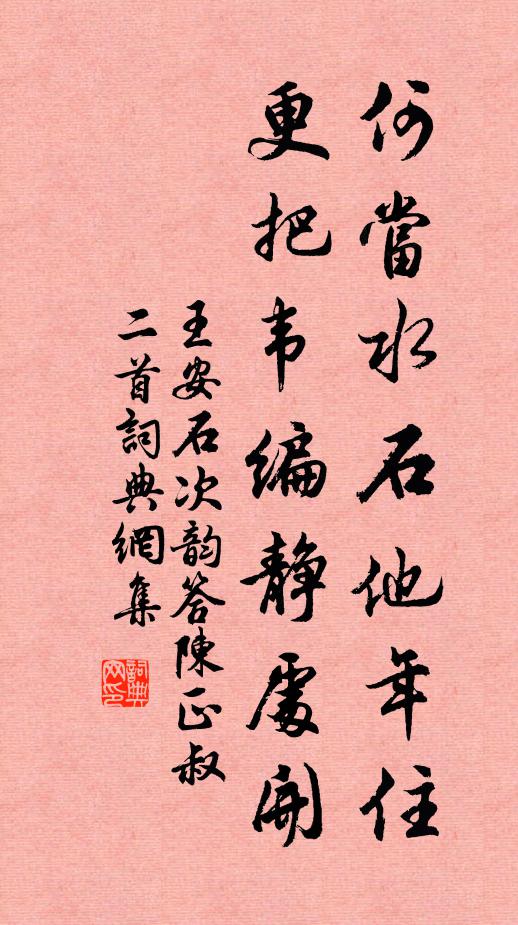 何當水石他年住
更把韦编静處開
王安石次韵答陳正叔
二首詞典網集
詞典网印